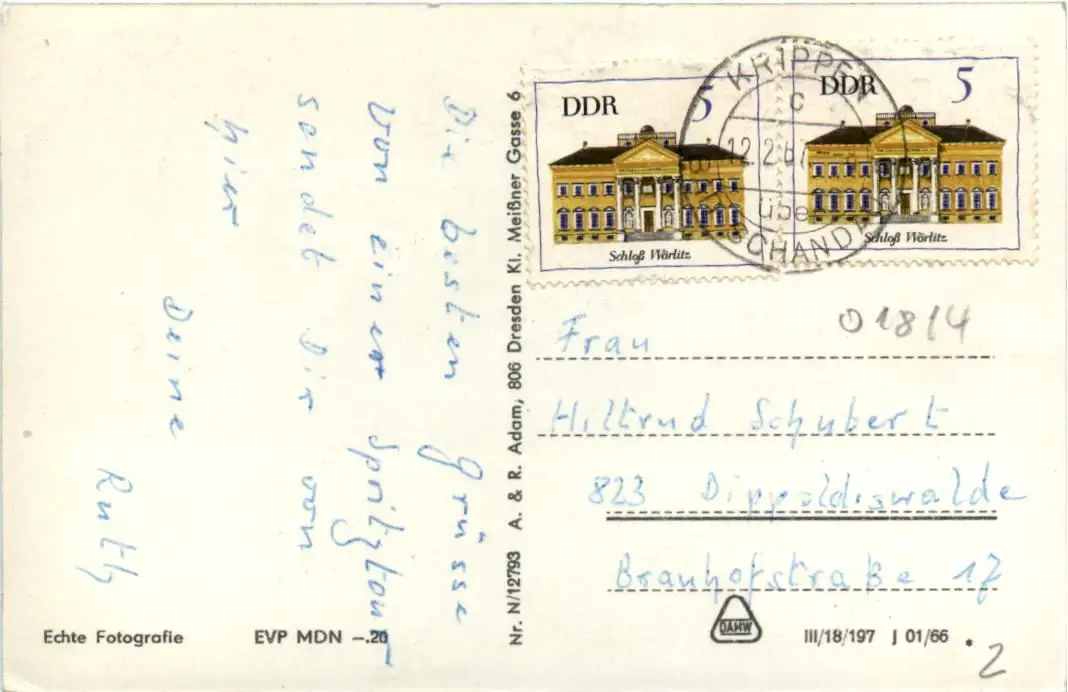 Die besten Grüsse
von einer Spritztour
sendet Dir von
hier
Deine
Ruth
Echte Fotografie
EVP MDN –.20
Nr. N/12793 A. & R. Adam, 806 Dresden Kl. Meißner Gasse 6
DDR 5
Schloß Wörlitz
DDR 5
Schloß Wörlitz
KRIPPEN
c
12.2.67
übe
SCHANDA
01814
Frau
Hiltrud Schubert
823 Dippoldiswalde
Brauhofstraße 17
DAMW
III/18/197 J 01/66
2